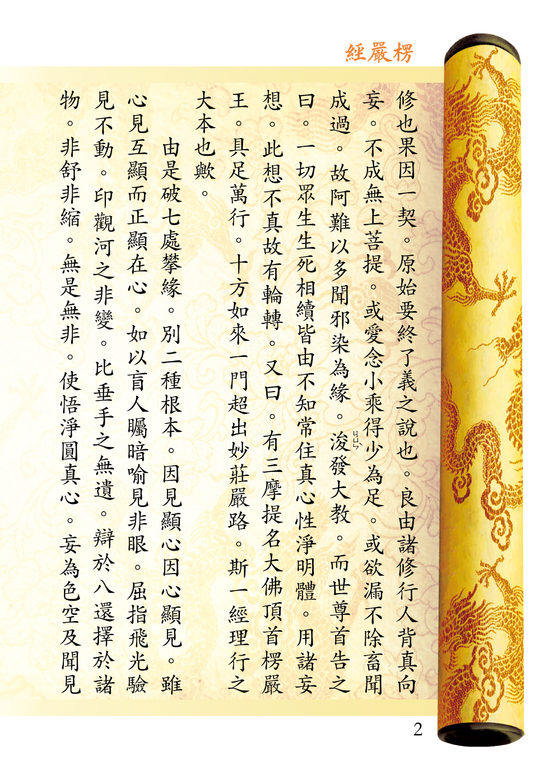 楞嚴經
修也果因一契。原始要終了義之說也。良由諸修行人背真向
妄。不成無上菩提。或愛念小乘得少為足。或欲漏不除畜聞
成過。故阿難以多聞邪染為緣。浚發大教。而世尊首告之
曰。一切眾生生死相續皆由不知常住真心性淨明體。用諸妄
想。此想不真故有輪轉。又曰。有三摩提名大佛頂首楞嚴
王。具足萬行。十方如來一門超出妙莊嚴路。斯一經理行之
大本也歟。
由是破七處攀緣。別二種根本。因見顯心因心顯見。雖
心見互顯而正顯在心。如以盲人矚暗喻見非眼。屈指飛光驗
見不動。印觀河之非變。比垂手之無遺。辯於八還擇於諸
物。非舒非縮。無是無非。使悟淨圓真心。妄為色空及聞見
2